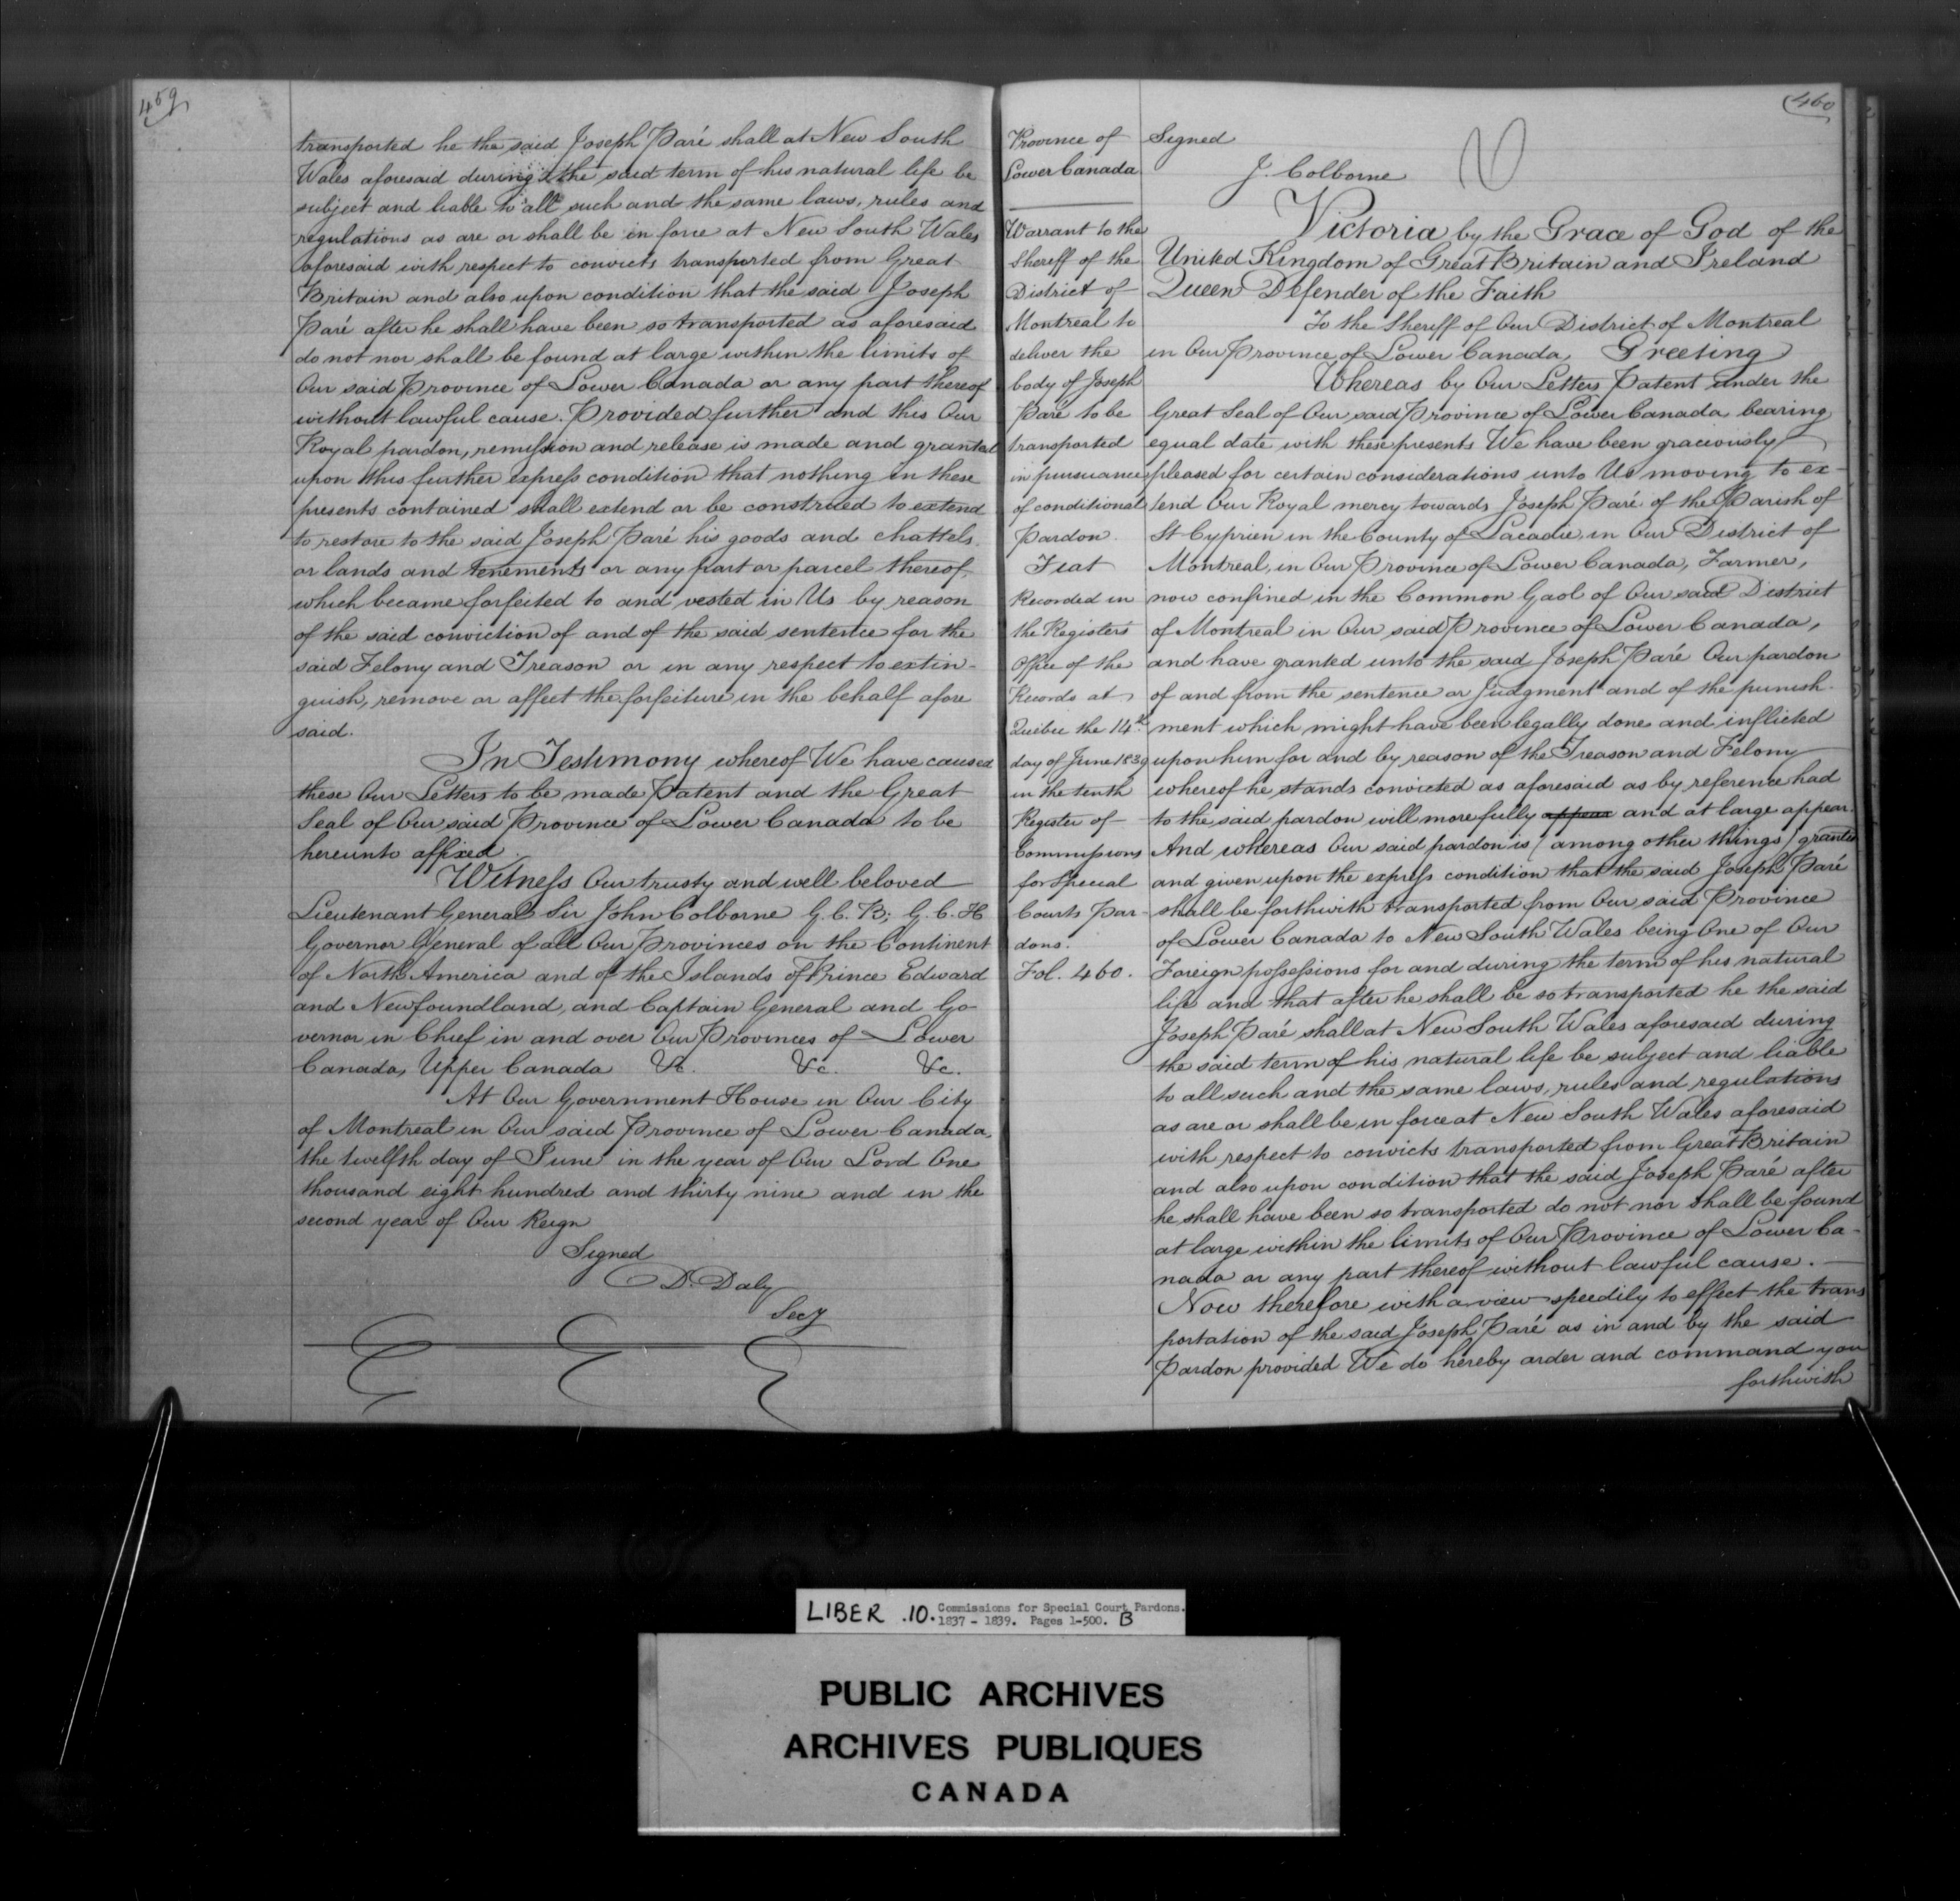 459
transported he the said Joseph Paré shall at New South
Wales aforesaid during the said term of his natural life be
subject and liable to all such and the same laws, rules and
regulations as are or shall be in force at New South Wales
aforesaid with respect to convicts transported from Great
Britain and also upon condition that the said Joseph
Paré after he shall have been so transported as aforesaid
do not nor shall be found at large within the limits of
Our said Province of Lower Canada or any part thereof
without lawful cause. Provided further and this Our
Royal pardon, remission and release is made and granted
upon this further express condition that nothing in these
presents contained shall extend or be construed to extend
to restore to the said Joseph Paré his goods and chattels
or lands and tenements or any part or parcel thereof,
which became forfeited to and vested in Us by reason
of the said conviction of and of the said sentence for the
said Felony and Treason or in any respect to extin-
guish, remove or affect the forfeiture in the behalf afore
said.
In Testimony whereof We have caused
these Our Letters to be made Patent and the Great
Seal of Our said Province of Lower Canada to be
hereunto affixed.
Witness Our trusty and well beloved
Lieutenant General Sir John Colborne G.C.B; G.C.H
Governor General of all Our Provinces on the Continent
of North America and of the Islands of Prince Edward
and Newfoundland, and Captain General and Go-
vernor in Chief in and over Our Provinces of Lower
Canada, Upper Canada &c. &c. &c.
At Our Government House in Our City
of Montreal in Our said Province of Lower Canada,
the twelfth day of June in the year of Our Lord One
thousand eight hundred and thirty nine and in the
second year of Our Reign
Signed
D. Daly
Secy
460
Province of
Lower Canada
Warrant to the
Sheriff of the
District of
Montreal to
deliver the
body of Joseph
Paré to be
transported
in pursuance
of conditional
pardon.
Fiat
Recorded in
the Registers
Office of the
Records at
Quebec the 14th
day of June 1839
in the tenth
Register of
Commissions
for Special
Courts Par-
dons.
Fol. 460.
Signed
J. Colborne
Victoria by the Grace of God of the
United Kingdom of Great Britain and Ireland
Queen Defender of the Faith
To the Sheriff of Our District of Montreal
in Our Province of Lower Canada, Greeting
Whereas by Our Letters Patent under the
Great Seal of Our said Province of Lower Canada bearing
equal date with these presents We have been graciously
pleased for certain considerations unto Us moving to ex-
tend Our Royal mercy towards Joseph Paré of the Parish of
St Cyprien in the County of Lacadie in Our District of
Montreal, in Our Province of Lower Canada, Farmer,
now confined in the Common Gaol of Our said District
of Montreal in Our said Province of Lower Canada,
and have granted unto the said Joseph Paré Our pardon
of and from the sentence or Judgment and of the punish-
ment which might have been legally done and inflicted
upon him for and by reason of the Treason and Felony
whereof he stands convicted as aforesaid as by reference had
to the said pardon will more fully appear and at large appear.
And whereas Our said pardon is (among other things) granted
and given upon the express condition that the said Joseph Paré
shall be forthwith transported from Our said Province
of Lower Canada to New South Wales being One of Our
Foreign possessions for and during the term of his natural
life and that after he shall be so transported he the said
Joseph Paré shall at New South Wales aforesaid during
the said term of his natural life be subject and liable
to all such and the same laws, rules and regulations
as are or shall be in force at New South Wales aforesaid
with respect to convicts transported from Great Britain
and also upon condition that the said Joseph Paré after
he shall have been so transported do not nor shall be found
at large within the limits of Our Province of Lower Ca-
nada or any part thereof without lawful cause.
Now therefore with a view speedily to effect the trans
portation of the said Joseph Paré as in and by the said
Pardon provided We do hereby order and command you
forthwith
LIBER .10. Commissions for Special Court Pardons.
1837 - 1839. Pages 1-500. B
PUBLIC ARCHIVES
ARCHIVES PUBLIQUES
CANADA